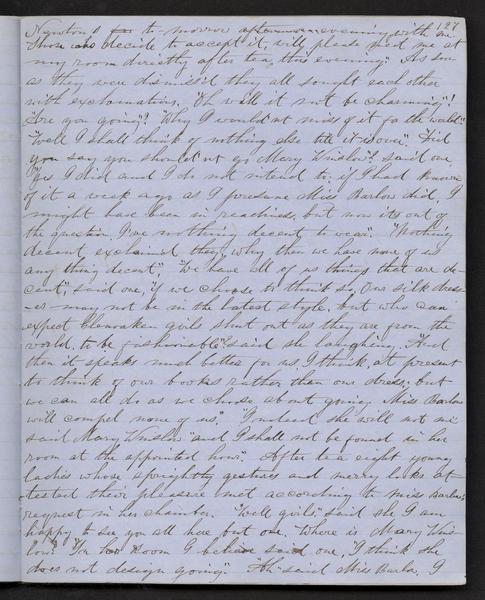 127
Newton's for to-morrow afternoon evening with me
Those who decide to accept it, will please meet me at
my room directly after tea, this evening." As soon
as they were dismiss'd they all sought each other
with exclamations. "Oh will it not be charming"!
"Are you going"? "Why I wouldn't miss of it for the world"
"Well I shall think of nothing else till it is over". "Did
you say you should n't go Mary Winslow"? said one,
"Yes I did and I do not intend to; if I had known
of it a week ago as I presume Miss Barlow did, I
might have been in readiness, but now its out of
the question I've nothing decent to wear". "Nothing
decent, exclaimed they, why, then we have none of us
any thing decent". "We have all of us things that are de-
cent", said one, "if we choose to think so, Our silk dress-
es may not be in the latest style, but who can
expect Clonvaken girls shut out as they are from the
world, to be fashionable", said she laughing. And
then it speaks much better for us, I think, at present
to think of our books rather than our dress, but
we can all do as we choose about going Miss Barlow
will compel none of us". "Indeed she will not me"
said Mary Winslow "and I shall not be found in her
room at the appointed hour". After tea eight young
ladies whose sprightly gestures and merry looks at-
tested their pleasure met according to miss Barlow's
request in her chamber. "Well girls" said she I am
happy to see you all here but one. Where is Mary Wins-
low? "In her Room I believe said one, I think she
does not design going". "Ah" said Miss Barlow, I